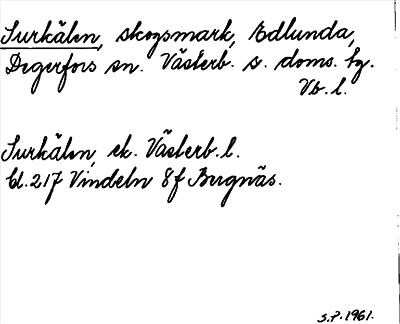 Surkälen, skogsmark, Edlunda,
Degerfors sn. Västerb. s. doms. hg.
Vb. l.
Surkälen, ek. Västerb. l.
bl. 217 Vindeln 8f Burgnäs.
S.P. 1961.